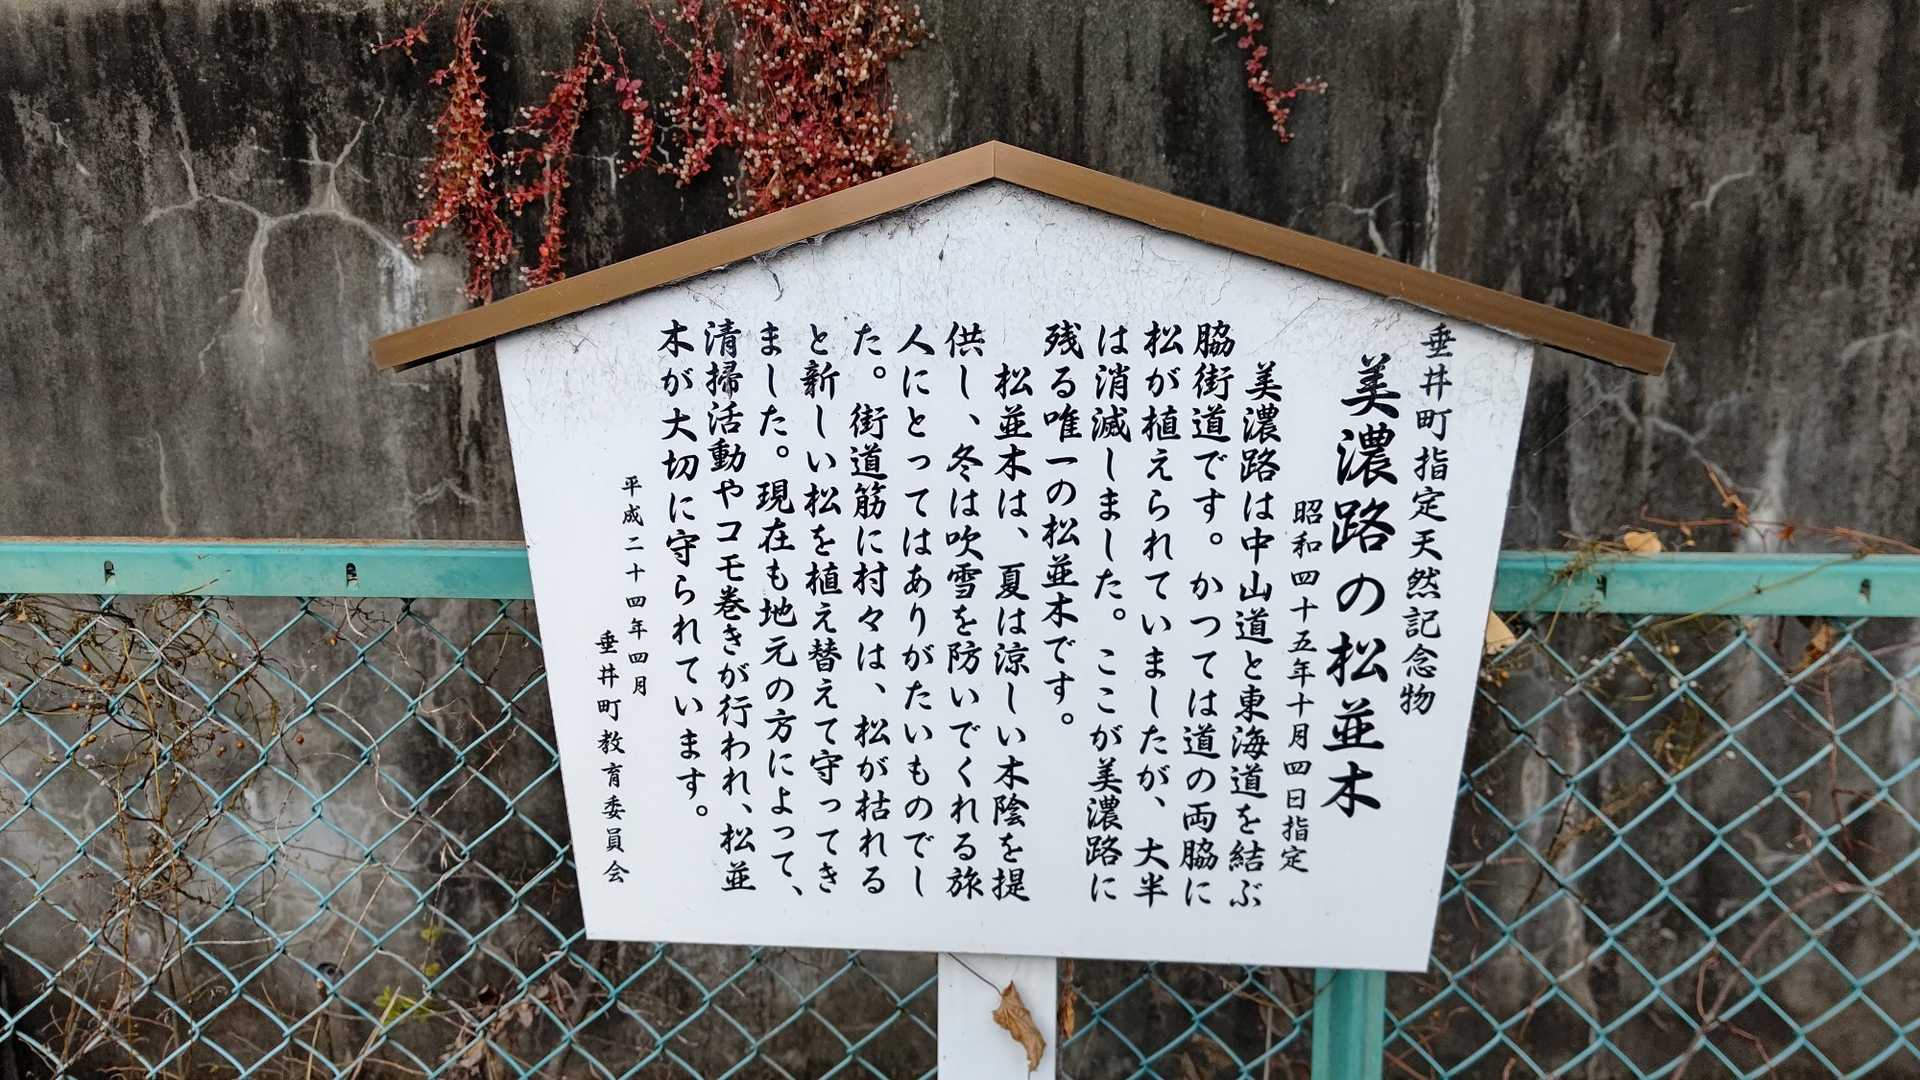 垂井町指定天然記念物
美濃路の松並木
昭和四十五年十月四日指定
美濃路は中山道と東海道を結ぶ
脇街道です。かつては道の両脇に
松が植えられていましたが、大半
は消滅しました。ここが美濃路に
残る唯一の松並木です。
松並木は、夏は涼しい木陰を提
供し、冬は吹雪を防いでくれる旅
人にとってはありがたいものでし
た。街道筋に村々は、松が枯れる
と新しい松を植え替えて守ってき
ました。現在も地元の方によって、
清掃活動やコモ巻きが行われ、松並
木が大切に守られています。
平成二十四年四月
垂井町教育委員会